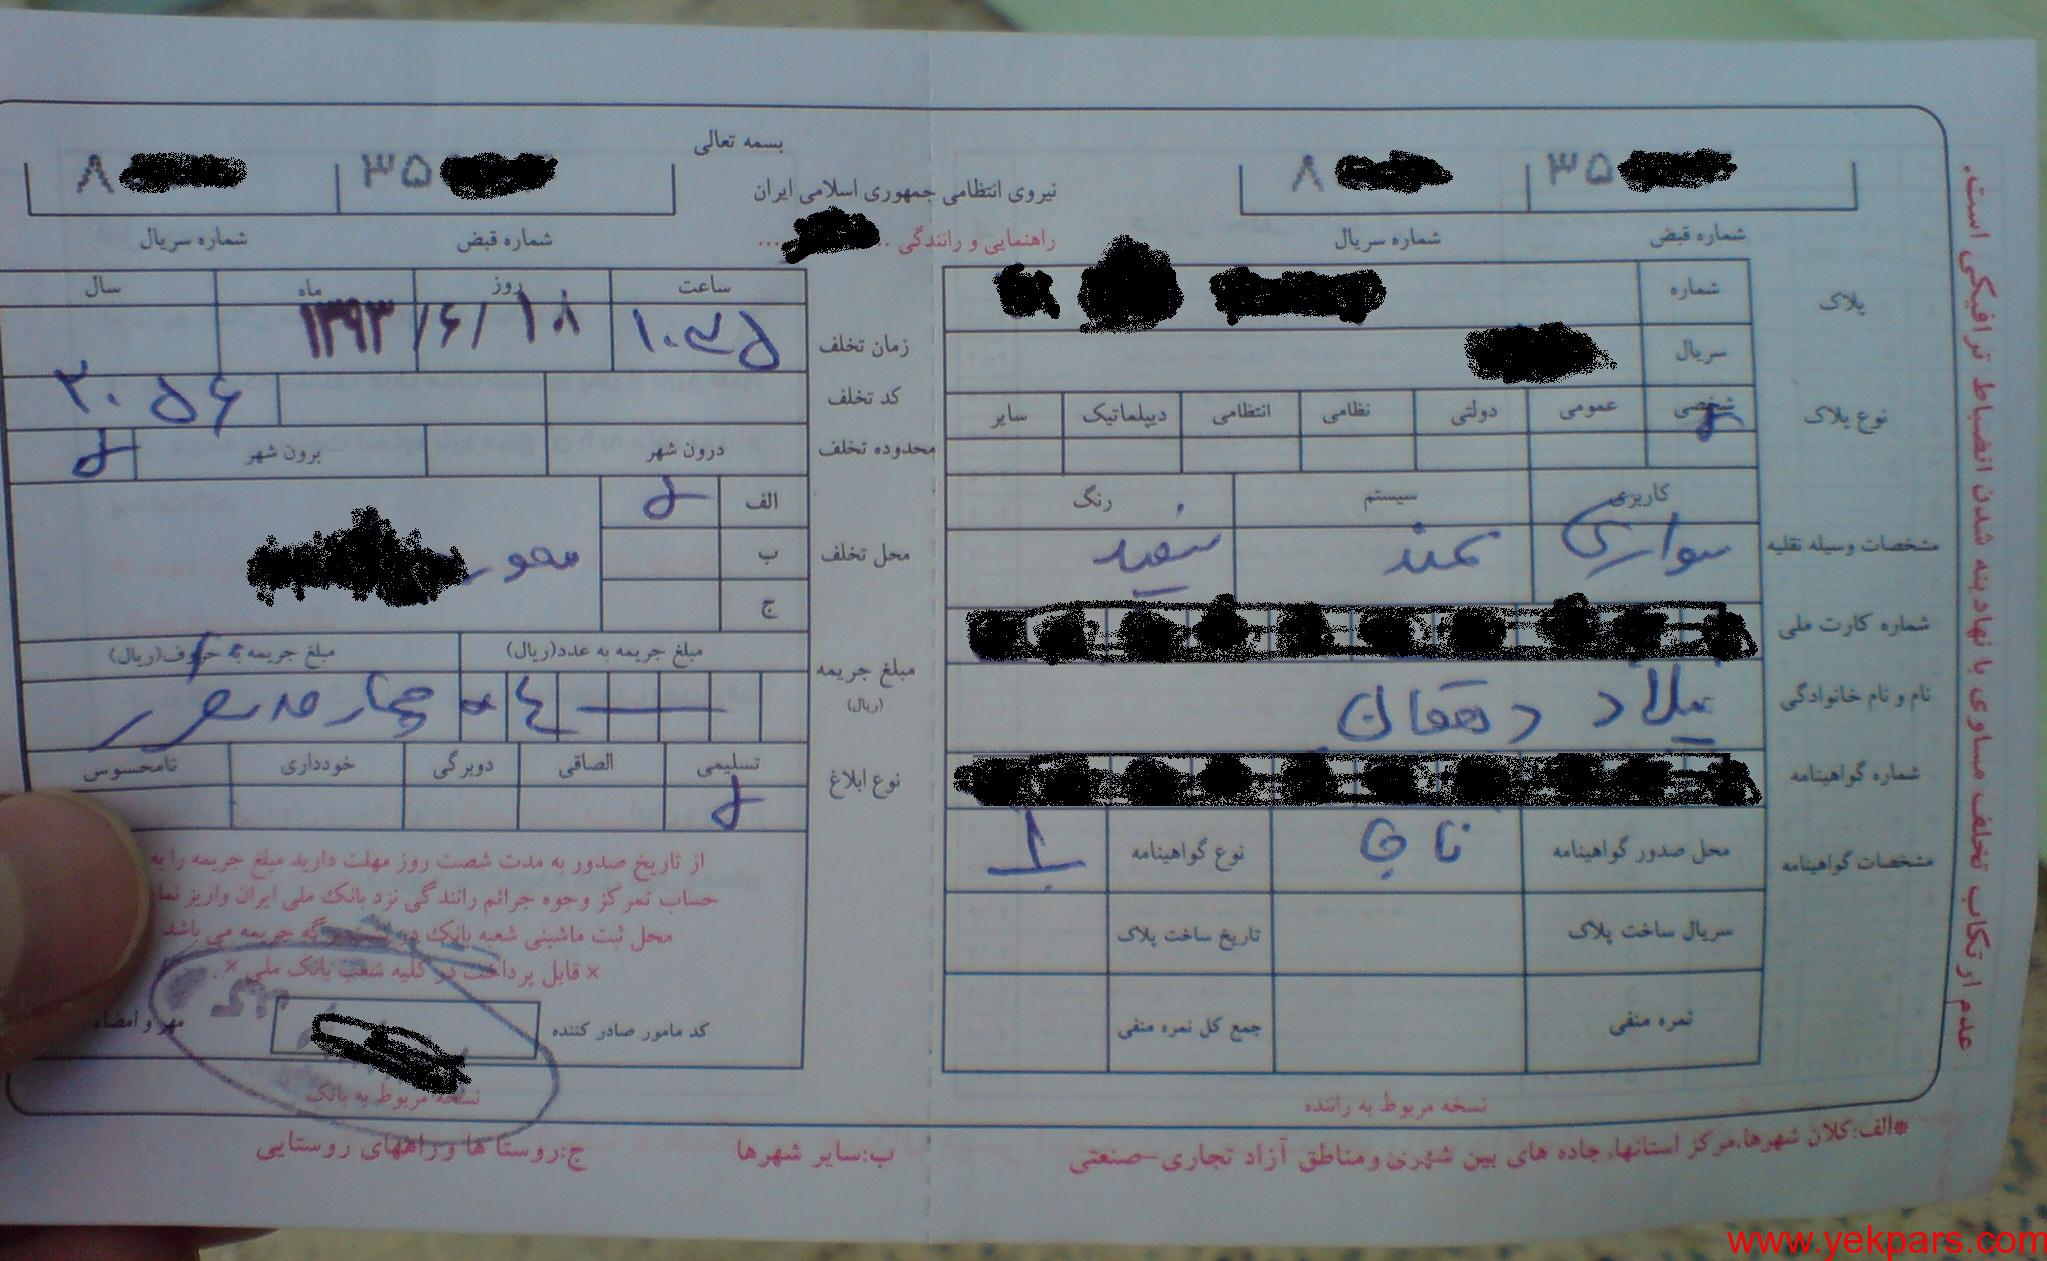 بسمه تعالی
نیروی انتظامی جمهوری اسلامی ایران
راهنمایی و رانندگی
۳۵
۸
شماره قبض
شماره سریال
پلاک
شماره
سریال
نوع پلاک
شخصی
عمومی
دولتی
نظامی
انتظامی
دیپلماتیک
سایر
مشخصات وسیله نقلیه
کاربری
سیستم
رنگ
سواری
سمند
سفید
شماره کارت ملی
نام و نام خانوادگی
میلاد دهقان
شماره گواهینامه
مشخصات گواهینامه
محل صدور گواهینامه
نوع گواهینامه
سریال ساخت پلاک
تاریخ ساخت پلاک
نمره منفی
جمع کل نمره منفی
نسخه مربوط به راننده
عدم ارتکاب تخلف مساوی با نهادینه شدن انضباط ترافیکی است.
۳۵
۸
شماره قبض
شماره سریال
زمان تخلف
ساعت
روز
ماه
سال
۱۰:۳۵
۱۳۹۳/۶/۱۸
کد تخلف
۲۰۵۶
محدوده تخلف
درون شهر
برون شهر
محل تخلف
الف
ب
ج
محور
مبلغ جریمه
(ریال)
مبلغ جریمه به عدد(ریال)
مبلغ جریمه به حروف(ریال)
نوع ابلاغ
تسلیمی
الصاقی
دوبرگی
خودداری
نامحسوس
از تاریخ صدور به مدت شصت روز مهلت دارید مبلغ جریمه را به
حساب تمرکز وجوه جرائم رانندگی نزد بانک ملی ایران واریز
محل ثبت ماشینی شعبه بانک در پشت برگه جریمه می باشد
× قابل پرداخت در کلیه شعب بانک ملی ×
کد مامور صادر کننده
مهر و امضاء
نسخه مربوط به بانک
*الف:کلان شهرها،مرکز استانها، جاده های بین شهری و مناطق آزاد تجاری-صنعتی
ب:سایر شهرها
ج:روستا ها و راههای روستایی
www.yekpars.com